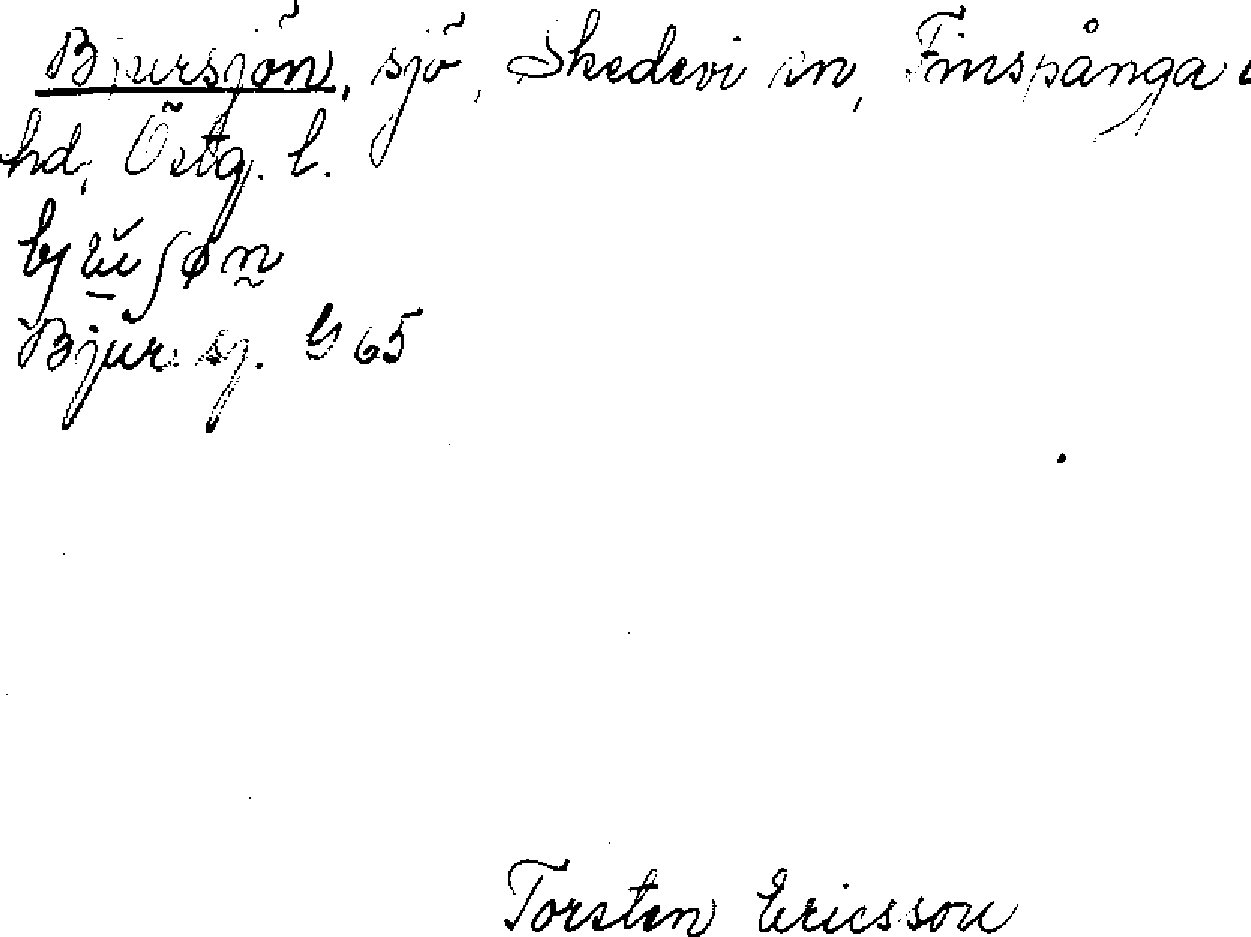 Bjursjön, sjö, Skedevi sn, Finspånga
hd, Östg. l.
Bjur. sj. G 65
Torsten Ericsson